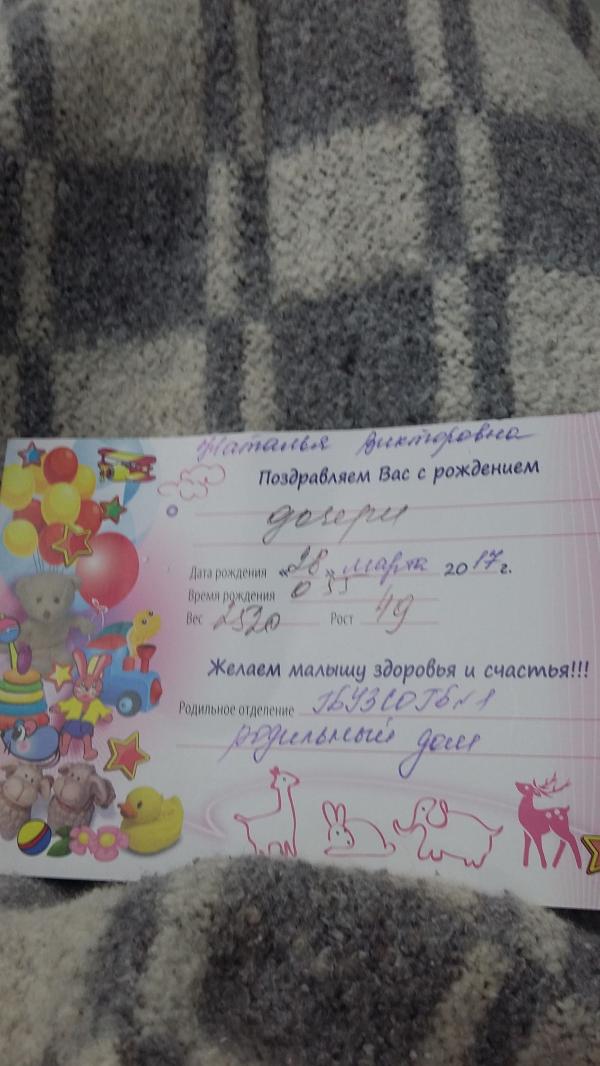 Наталья Викторовна
Поздравляем Вас с рождением
дочери
Дата рождения «28» марта 2017 г.
Время рождения 0 55
Вес 2520 Рост 49
Желаем малышу здоровья и счастья!!!
Родильное отделение ГБУЗ СО ГБ №1
родильный дом